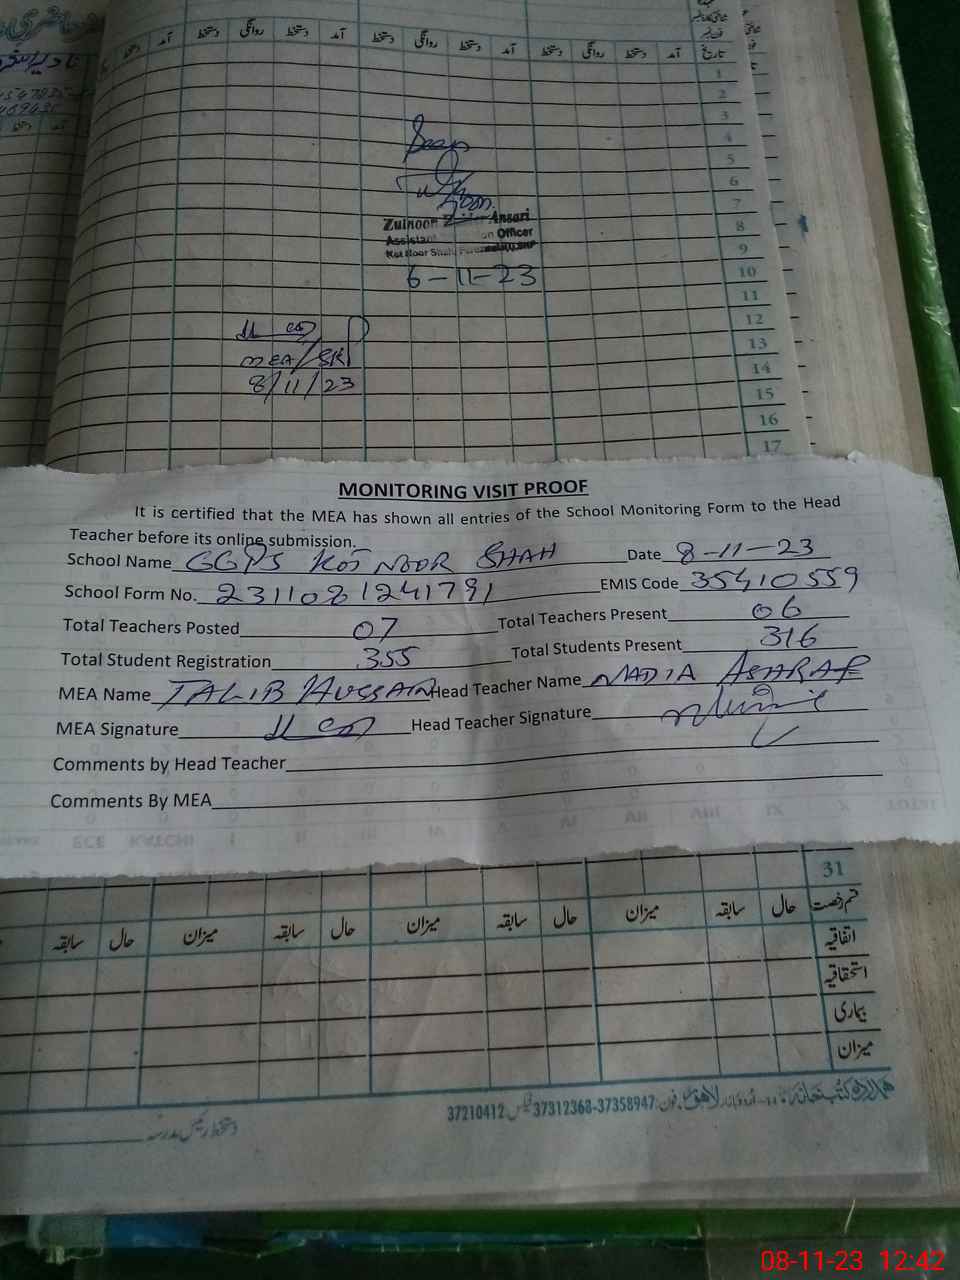 آمد دستخط روانگی دستخط آمد دستخط روانگی دستخط آمد دستخط روانگی دستخط آمد تاریخ
1
2
3
4
5
6
7
8
9
10
11
12
13
14
15
16
17
Seen
Zulnoon Ansari
Assistant Officer
Kot Noor Shah
6-11-23
MEA/SKP
8/11/23
MONITORING VISIT PROOF
It is certified that the MEA has shown all entries of the School Monitoring Form to the Head
Teacher before its online submission.
School Name GGPS KOT NOOR SHAH Date 8-11-23
School Form No. 2311081241791 EMIS Code 35410559
Total Teachers Posted 07 Total Teachers Present 06
Total Student Registration 355 Total Students Present 316
MEA Name TALIB HUSSAIN Head Teacher Name NADIA ASHRAF
MEA Signature Head Teacher Signature
Comments by Head Teacher
Comments By MEA
31
قسم رخصت حال سابقہ میزان حال سابقہ میزان حال سابقہ میزان حال سابقہ
اتفاقیہ
استحقاقیہ
بیماری
میزان
ہمدرد کتب خانہ لاہور فون: 37358947-37312368 فیکس: 37210412
دستخط رئیس مدرسہ
08-11-23 12:42